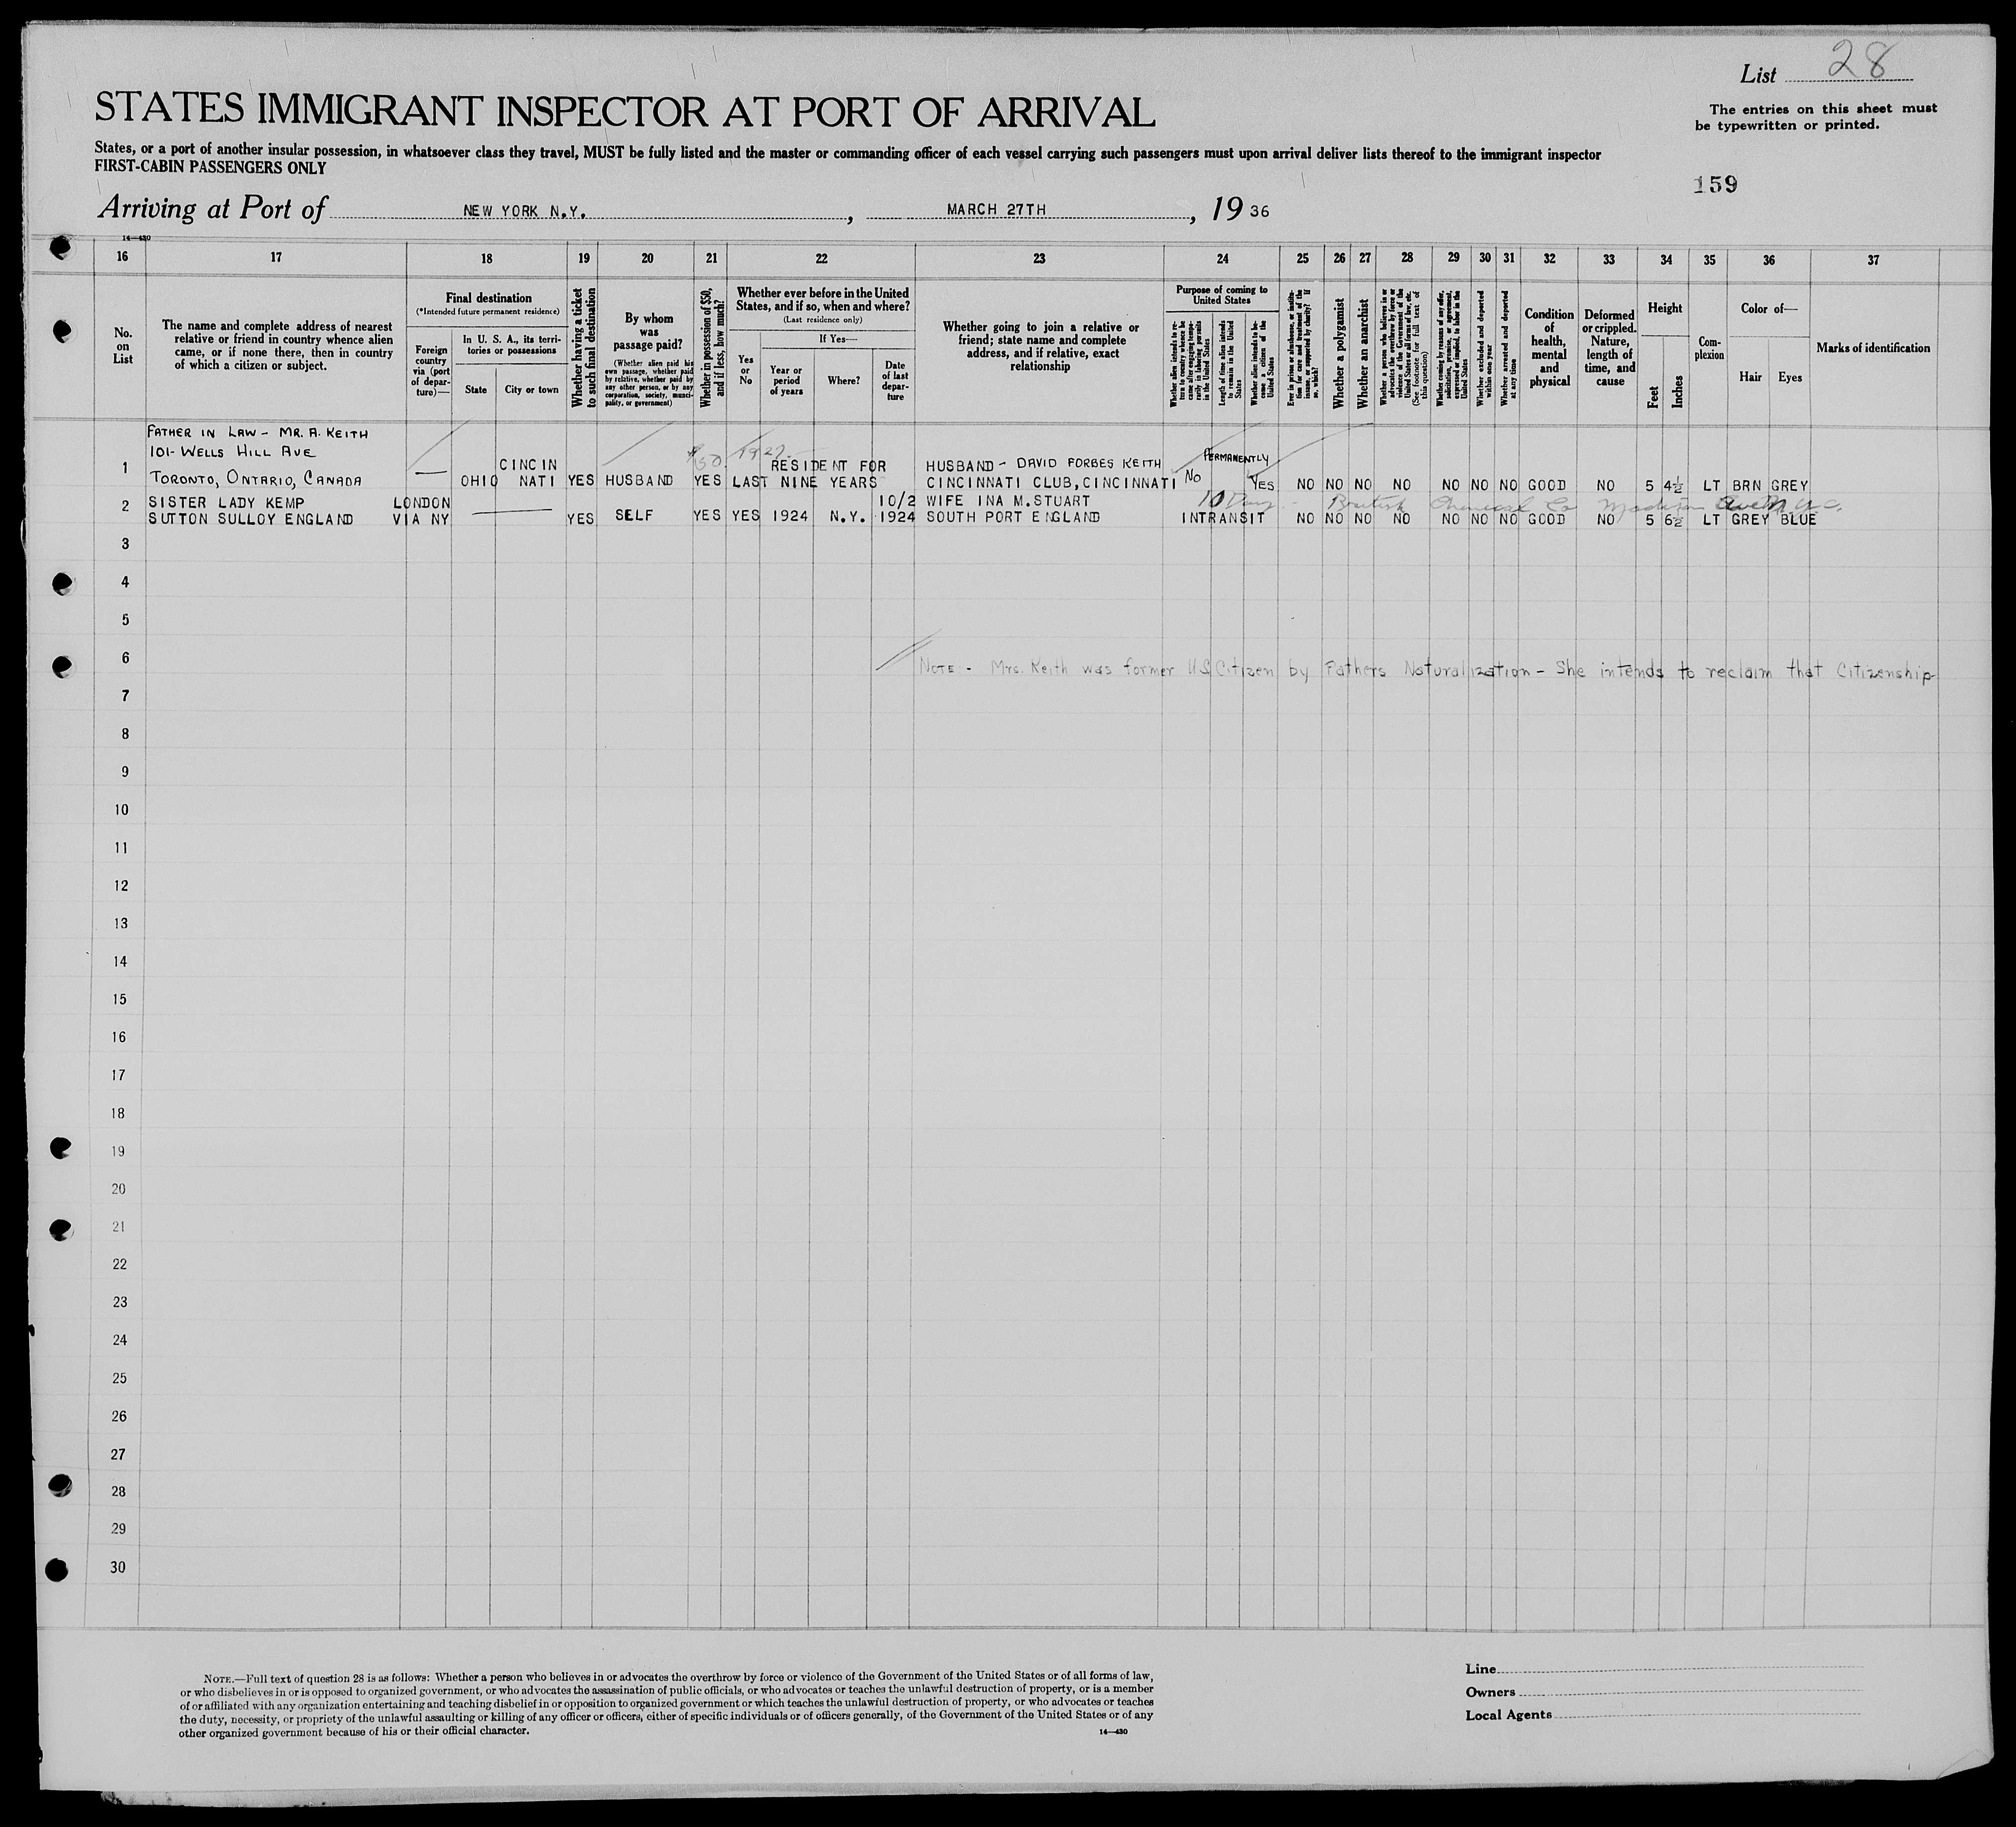 List 28
The entries on this sheet must
be typewritten or printed.
STATES IMMIGRANT INSPECTOR AT PORT OF ARRIVAL
States, or a port of another insular possession, in whatsoever class they travel, MUST be fully listed and the master or commanding officer of each vessel carrying such passengers must upon arrival deliver lists thereof to the immigrant inspector
FIRST-CABIN PASSENGERS ONLY
159
Arriving at Port of NEW YORK N.Y. , MARCH 27TH , 19 36
14—430
16 17 18 19 20 21 22 23 24 25 26 27 28 29 30 31 32 33 34 35 36 37
No.
on
List
The name and complete address of nearest
relative or friend in country whence alien
came, or if none there, then in country
of which a citizen or subject.
Final destination
(*Intended future permanent residence)
Foreign
country
via (port
of depar-
ture)—
In U. S. A., its terri-
tories or possessions
State
City or town
Whether having a ticket
to such final destination
By whom
was
passage paid?
(Whether alien paid his
own passage, whether paid
by relative, whether paid by
any other person, or by any
corporation, society, munici-
pality, or government)
Whether in possession of $50,
and if less, how much?
Whether ever before in the United
States, and if so, when and where?
(Last residence only)
Yes
or
No
If Yes—
Year or
period
of years
Where?
Date
of last
depar-
ture
Whether going to join a relative or
friend; state name and complete
address, and if relative, exact
relationship
Purpose of coming to
United States
Whether alien intends to re-
turn to country whence he
came after engaging tempo-
rarily in laboring pursuits
in the United States
Length of time alien intends
to remain in the United
States
Whether alien intends to be-
come a citizen of the
United States
Ever in prison or almshouse, or institu-
tion for care and treatment of the
insane, or supported by charity? If
so, which?
Whether a polygamist
Whether an anarchist
Whether a person who believes in or
advocates the overthrow by force or
violence of the Government of the
United States or all forms of law, etc.
(See footnote for full text of
this question)
Whether coming by reason of any offer,
solicitation, promise, or agreement,
expressed or implied, to labor in the
United States
Whether excluded and deported
within one year
Whether arrested and deported
at any time
Condition
of
health,
mental
and
physical
Deformed
or crippled.
Nature,
length of
time, and
cause
Height
Feet
Inches
Com-
plexion
Color of—
Hair
Eyes
Marks of identification
FATHER IN LAW - MR. A. KEITH
101- WELLS HILL AVE $50 1927. PERMANENTLY
1 CINCIN RESIDENT FOR HUSBAND - DAVID FORBES KEITH
TORONTO, ONTARIO, CANADA — OHIO NATI YES HUSBAND YES LAST NINE YEARS CINCINNATI CLUB, CINCINNATI NO YES NO NO NO NO NO NO NO GOOD NO 5 4½ LT BRN GREY
2 SISTER LADY KEMP LONDON 10/2 WIFE INA M.STUART 10 Days - British Chemical Co Madison Ave N.Y.C.
SUTTON SULLOY ENGLAND VIA NY YES SELF YES YES 1924 N.Y. 1924 SOUTH PORT ENGLAND INTRANSIT NO NO NO NO NO NO NO GOOD NO 5 6½ LT GREY BLUE
3
4
5
6
NOTE - Mrs. Keith was former U.S. Citizen by Fathers Naturalization - She intends to reclaim that Citizenship
7
8
9
10
11
12
13
14
15
16
17
18
19
20
21
22
23
24
25
26
27
28
29
30
NOTE.—Full text of question 28 is as follows: Whether a person who believes in or advocates the overthrow by force or violence of the Government of the United States or of all forms of law,
or who disbelieves in or is opposed to organized government, or who advocates the assassination of public officials, or who advocates or teaches the unlawful destruction of property, or is a member
of or affiliated with any organization entertaining and teaching disbelief in or opposition to organized government or which teaches the unlawful destruction of property, or who advocates or teaches
the duty, necessity, or propriety of the unlawful assaulting or killing of any officer or officers, either of specific individuals or of officers generally, of the Government of the United States or of any
other organized government because of his or their official character.
14—430
Line
Owners
Local Agents